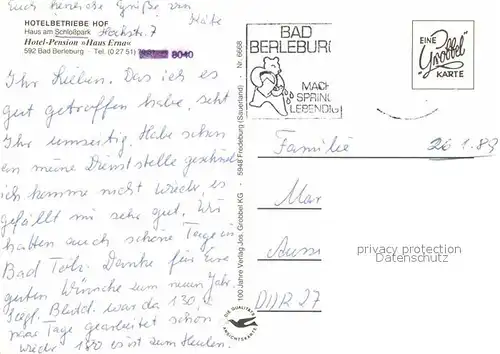 Euch herzliche Grüße von
Käte
HOTELBETRIEBE HOF
Haus am Schloßpark Hochstr. 7
Hotel-Pension »Haus Erna«
592 Bad Berleburg · Tel. (0 27 51) 8040
Ihr Lieben. Das ich es
gut getroffen habe, seht
Ihr umseitig. Habe schon
an meine Dienststelle geschrieben
ich komme nicht wieder, es
gefällt mir sehr gut. Wir
hatten auch schöne Tage in
Bad Tölz. Danke für Eure
guten Wünsche zum neuen Jahr.
Bluthd. war da 130, ein
paar Tage gearbeitet schon
wieder 180 es ist zum Heulen.
100 Jahre Verlag Jos. Grobbel KG · 5948 Fredeburg (Sauerland) Nr. 6668
BAD
BERLEBURG
MACH
SPRING
LEBENDIG
EINE
"Grobbel"
KARTE
Familie 26.1.89
Mar
Aussi
DDR 27
DIE QUALITÄTS
ANSICHTSKARTE
privacy protection
Datenschutz